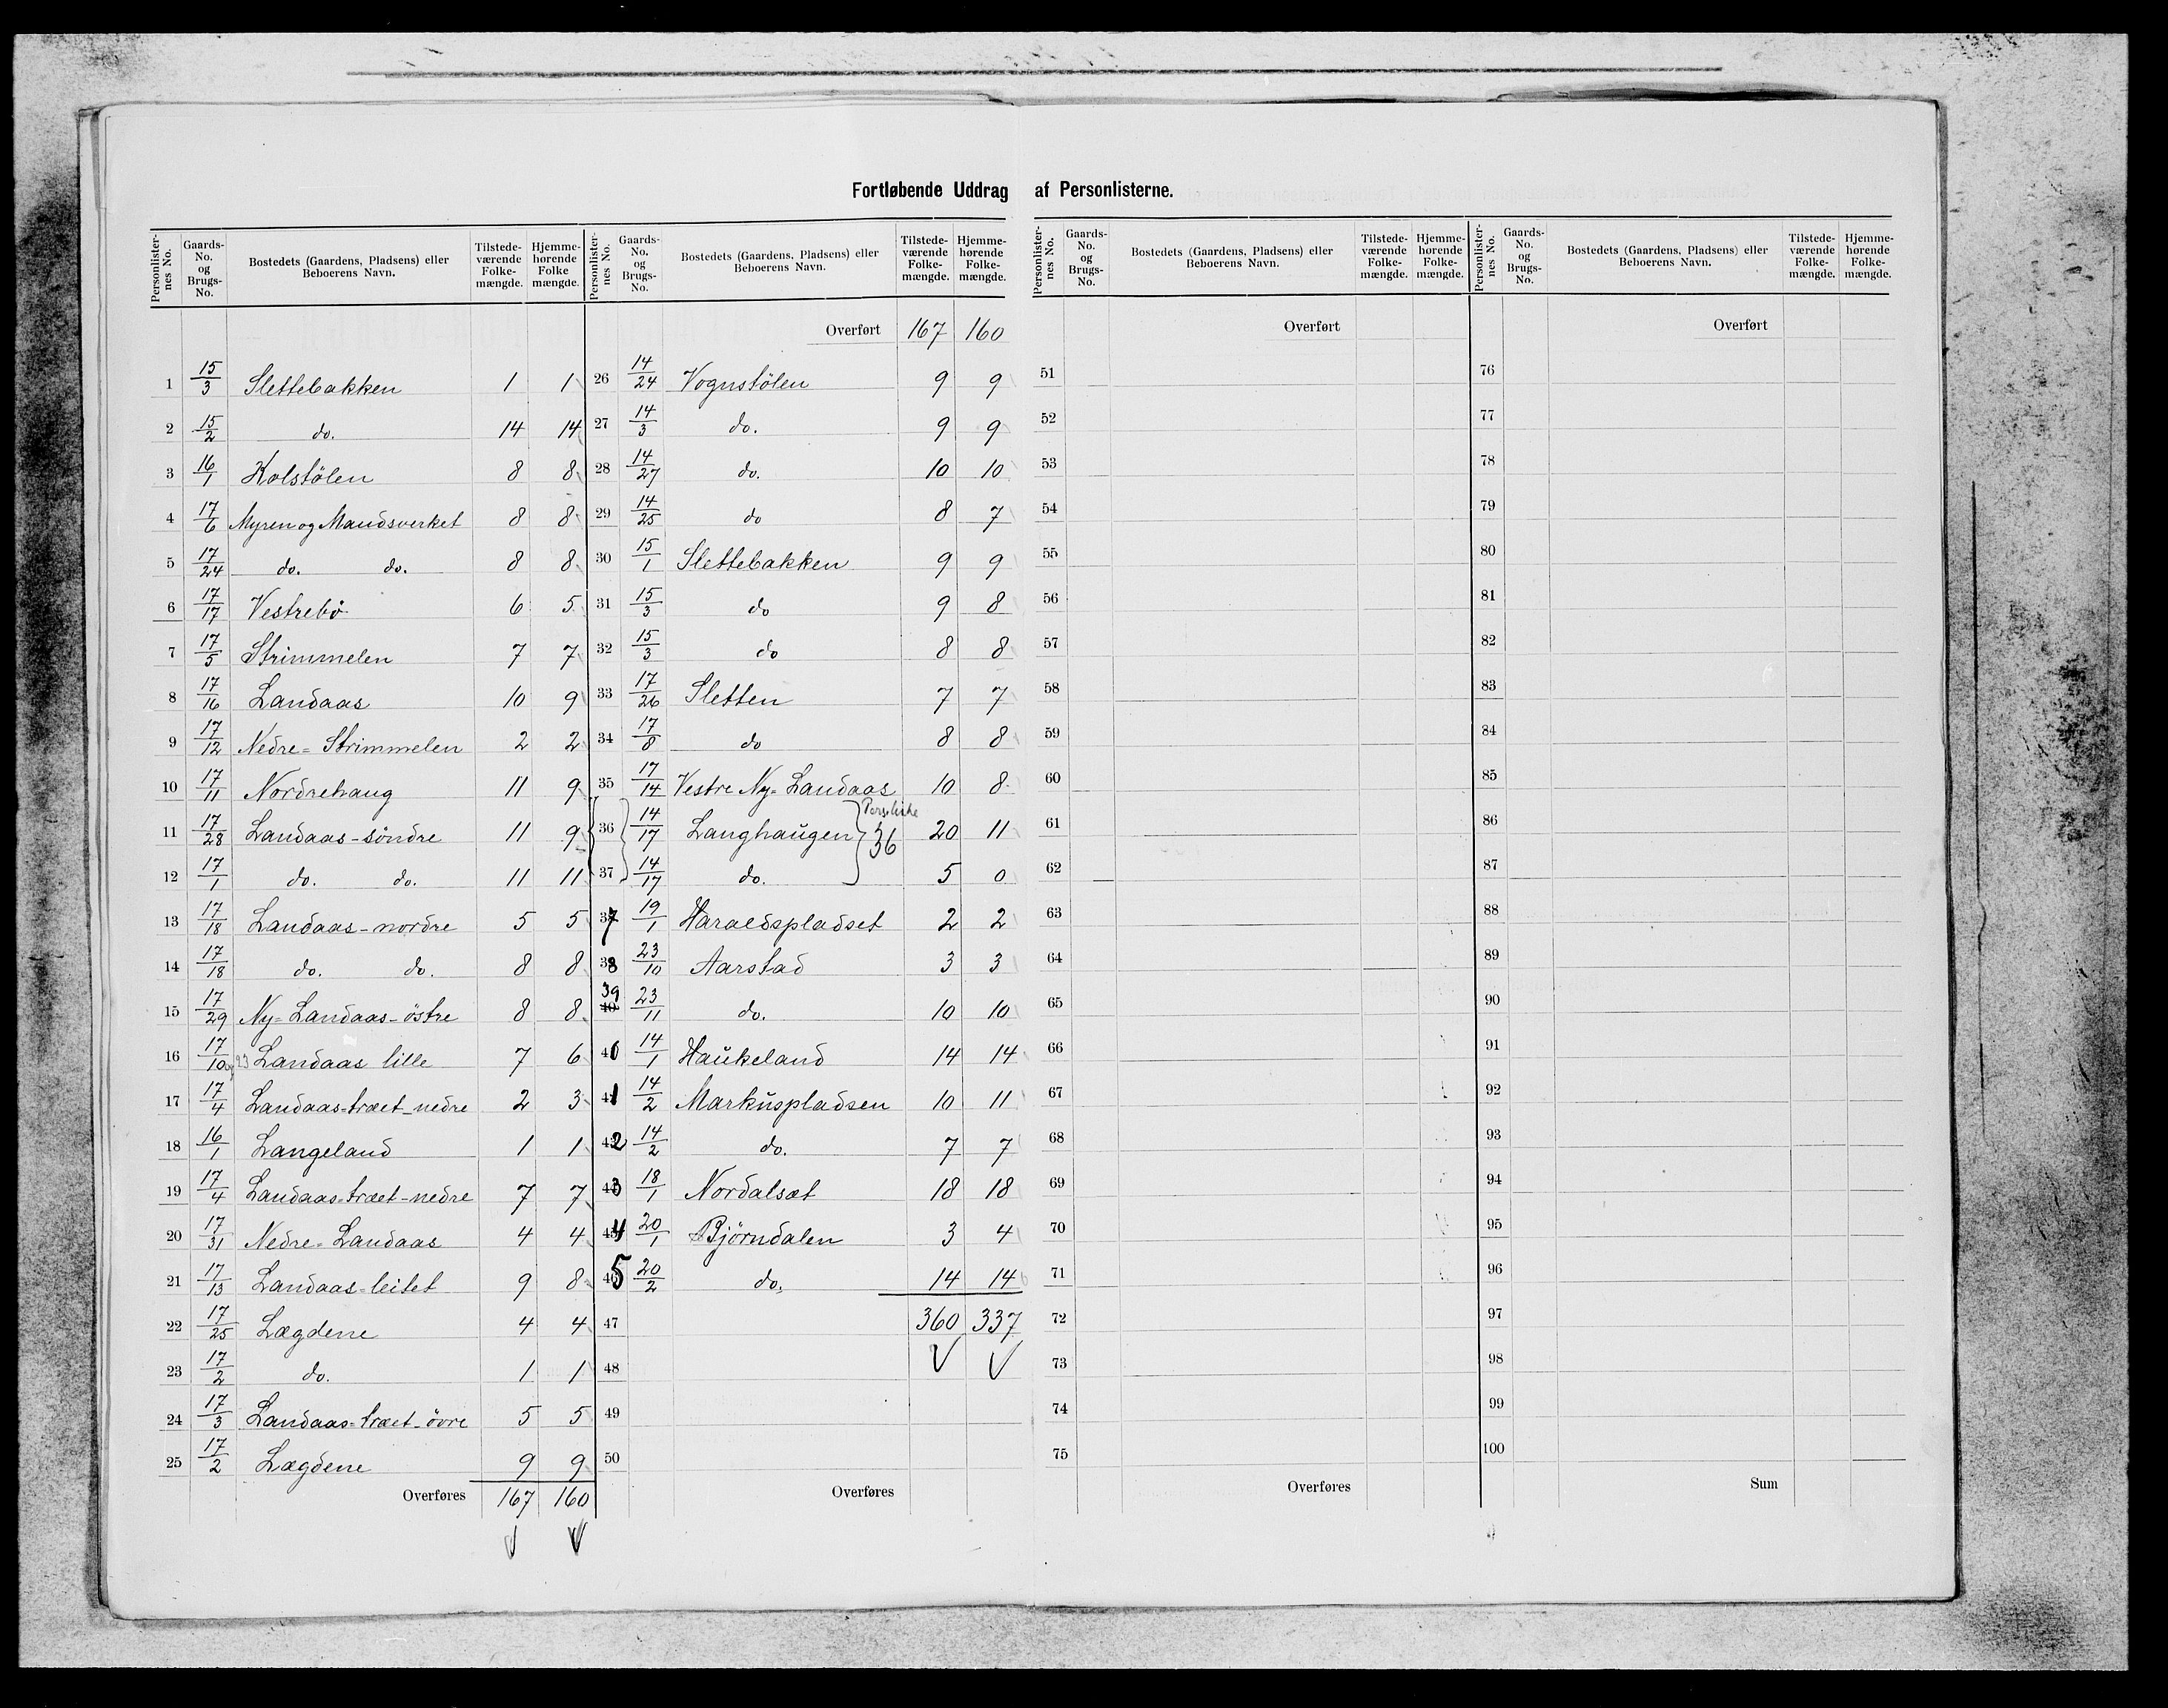 Fortløbende Uddrag af Personlisterne.
Personlister-nes No. | Gaards-No. og Brugs-No. | Bostedets (Gaardens, Pladsens) eller Beboerens Navn. | Tilstede-værende Folke-mængde. | Hjemme-hørende Folke mængde.
1 15/3 Slettebakken 1 1
2 15/2 do. 14 14
3 16/1 Kolstölen 8 8
4 17/6 Myren og Mandsverket 8 8
5 17/24 do. do. 8 8
6 17/17 Vestrebö 6 5
7 17/5 Strimmelen 7 7
8 17/16 Landaas 10 9
9 17/12 Nedre=Strimmelen 2 2
10 17/11 Nordrehaug 11 9
11 17/28 Landaas-söndre 11 9
12 17/1 do. do. 11 11
13 17/18 Landaas-nordre 5 5
14 17/18 do. do. 8 8
15 17/29 Ny=Landaas-östre 8 8
16 17/10 og 23 Landaas lille 7 6
17 17/4 Landaas=træet-nedre 2 3
18 16/1 Langeland 1 1
19 17/4 Landaas=træet-nedre 7 7
20 17/31 Nedre=Landaas 4 4
21 17/13 Landaas=leitet 9 8
22 17/25 Lægdene 4 4
23 17/2 do. 1 1
24 17/3 Landaas=træet-övre 5 5
25 17/2 Lægdene 9 9
Overføres 167 160
Personlister-nes No. | Gaards-No. og Brugs-No. | Bostedets (Gaardens, Pladsens) eller Beboerens Navn. | Tilstede-værende Folke-mængde. | Hjemme-hørende Folke-mængde.
Overført 167 160
26 14/24 Vognstölen 9 9
27 14/3 do. 9 9
28 14/27 do. 10 10
29 14/25 do 8 7
30 15/1 Slettebakken 9 9
31 15/3 do 9 8
32 15/3 do 8 8
33 17/26 Sletten 7 7
34 17/8 do 8 8
35 17/14 Vestre Ny=Landaas 10 8
36 14/17 Langhaugen Persliste 36 20 11
37 14/17 do. 5 0
37 19/1 Haraldspladset 2 2
38 23/10 Aarstad 3 3
39 40 23/11 do. 10 10
40 14/1 Haukeland 14 14
41 14/2 Markuspladsen 10 11
42 14/2 do. 7 7
43 18/1 Nordalsæt 18 18
44 20/1 Björndalen 3 4
45 20/2 do. 14 14
47 360 337
48
49
50
Overføres
Personlister-nes No. | Gaards-No. og Brugs-No. | Bostedets (Gaardens, Pladsens) eller Beboerens Navn. | Tilstede-værende Folke-mængde. | Hjemme-hørende Folke-mængde.
Overført
51
52
53
54
55
56
57
58
59
60
61
62
63
64
65
66
67
68
69
70
71
72
73
74
75
Overføres
Personlister-nes No. | Gaards-No. og Brugs-No. | Bostedets (Gaardens, Pladsens) eller Beboerens Navn. | Tilstede-værende Folke-mængde. | Hjemme-hørende Folke-mængde.
Overført
76
77
78
79
80
81
82
83
84
85
86
87
88
89
90
91
92
93
94
95
96
97
98
99
100
Sum